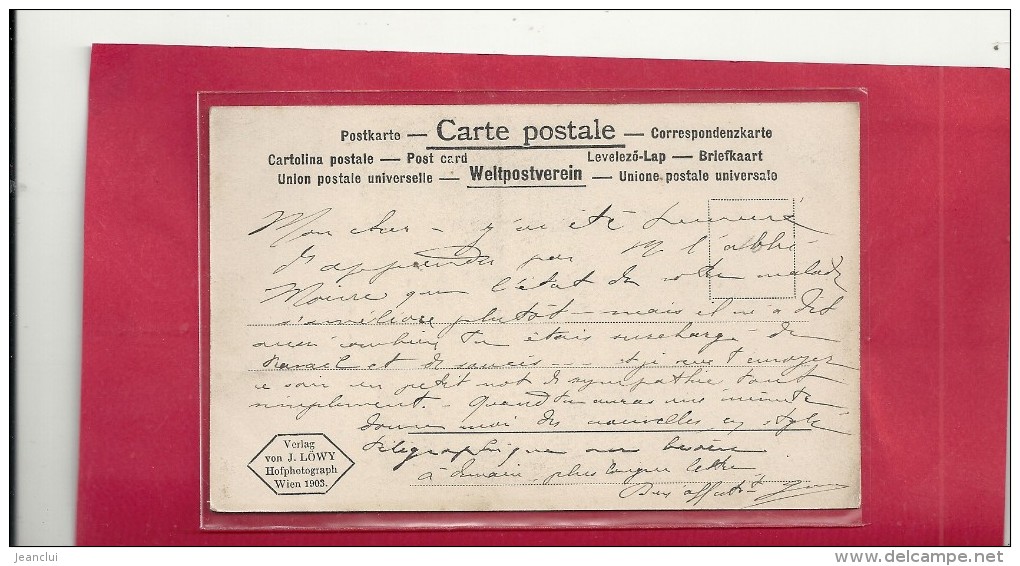 Postkarte — Carte postale — Correspondenzkarte
Cartolina postale — Post card Levelező-Lap — Briefkaart
Union postale universelle — Weltpostverein — Unione postale universale
Mon cher – j'ai été heureuse
d'apprendre par M l'abbé
que l'état de votre malade
s'améliore plutôt – mais il m'a dit
aussi combien tu étais surchargé de
travail et de soucis – et je veux t'envoyer
ce soir un petit mot de sympathie tout
simplement. – Quand tu auras une minute
donne moi des nouvelles en style
télégraphique au besoin
à demain, plus longue lettre
Bien affect
Verlag
von J. LÖWY
Hofphotograph
Wien 1903.
jeanclui
delcampe.net